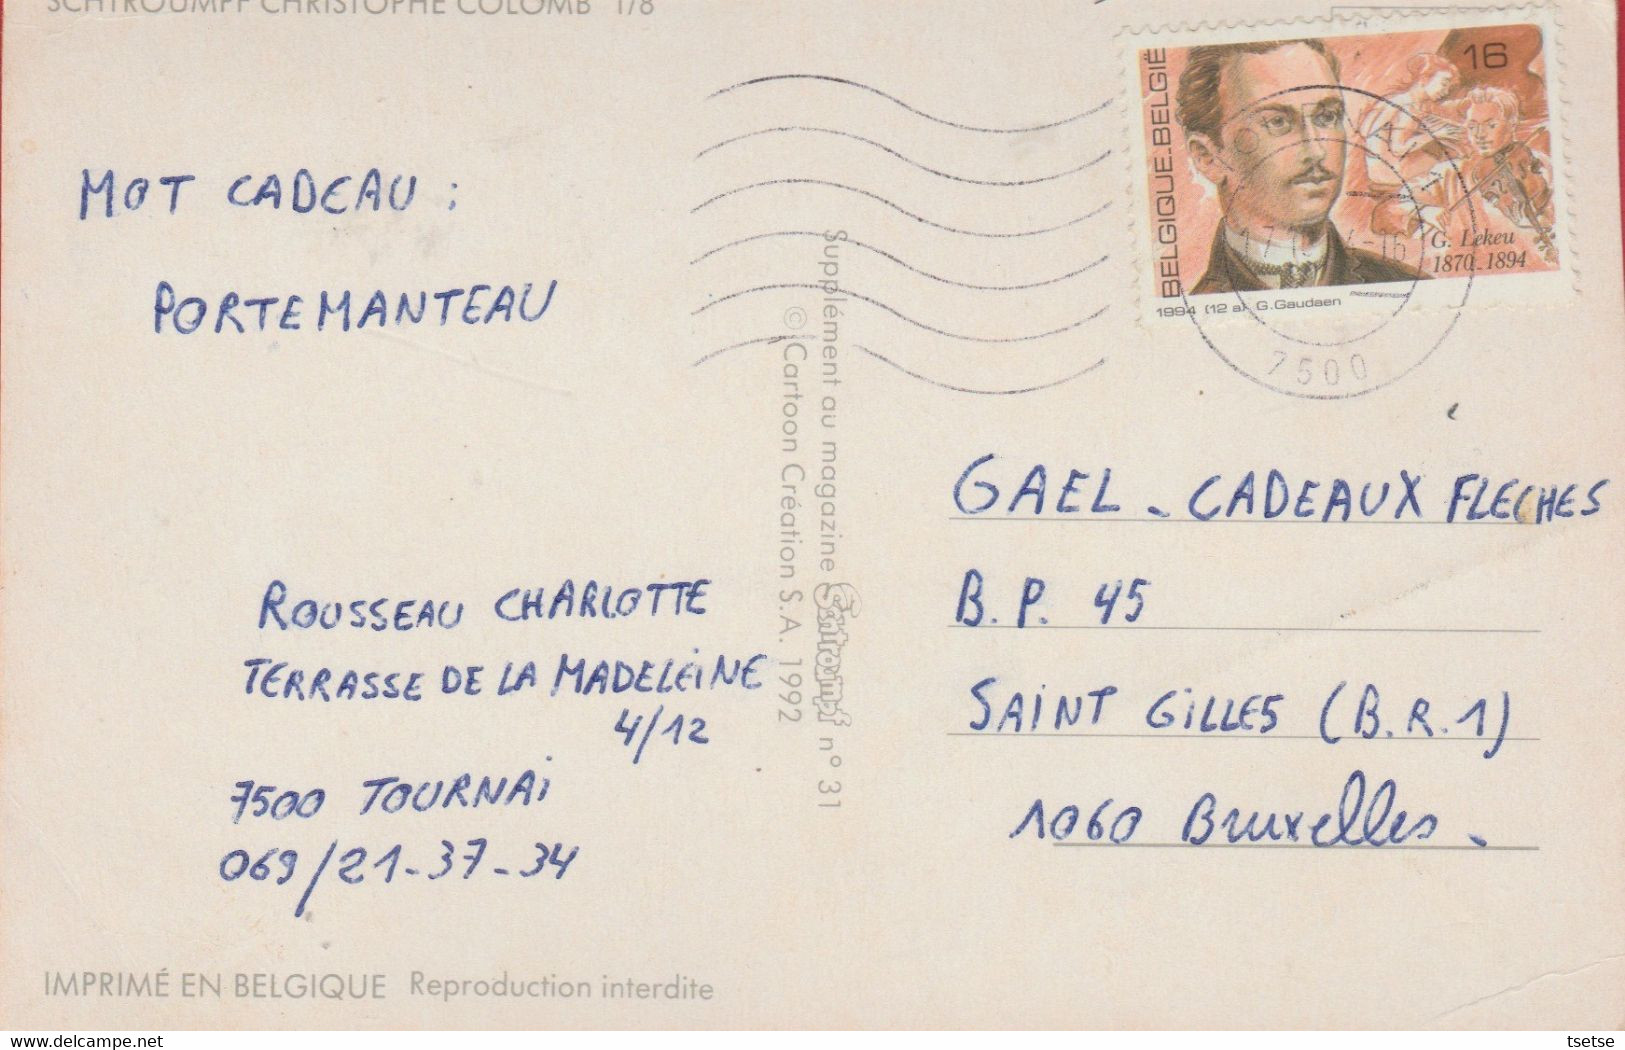 SCHTROUMPF CHRISTOPHE COLOMB 1/8
MOT CADEAU :
PORTEMANTEAU
ROUSSEAU CHARLOTTE
TERRASSE DE LA MADELEINE
4/12
7500 TOURNAI
069/21-37-34
IMPRIMÉ EN BELGIQUE Reproduction interdite
Supplément au magazine Schtroumpf n° 31
© Cartoon Création S.A. 1992
BELGIQUE.BELGIË
16
G. Lekeu
1870-1894
1994 (12 a) G.Gaudaen
7500
GAEL - CADEAUX FLECHES
B.P. 45
SAINT GILLES (B.R.1)
1060 Bruxelles.
tsetse